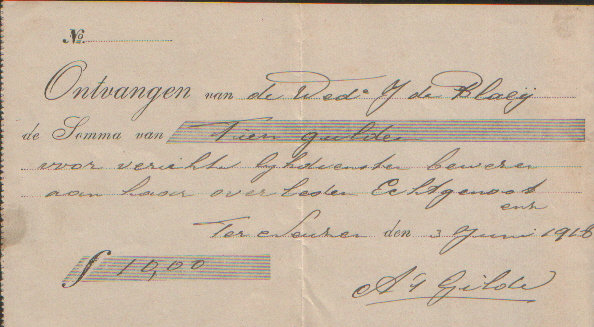 No.
Ontvangen van de Wede J de Blaeij
de Somma van Tien gulden
voor verichte lijkdiensten bewezen
aan haar overleden Echtgenoot
enz
Ter Neuzen den 3 Juni 1918
ƒ 10,00
A 't Gilde